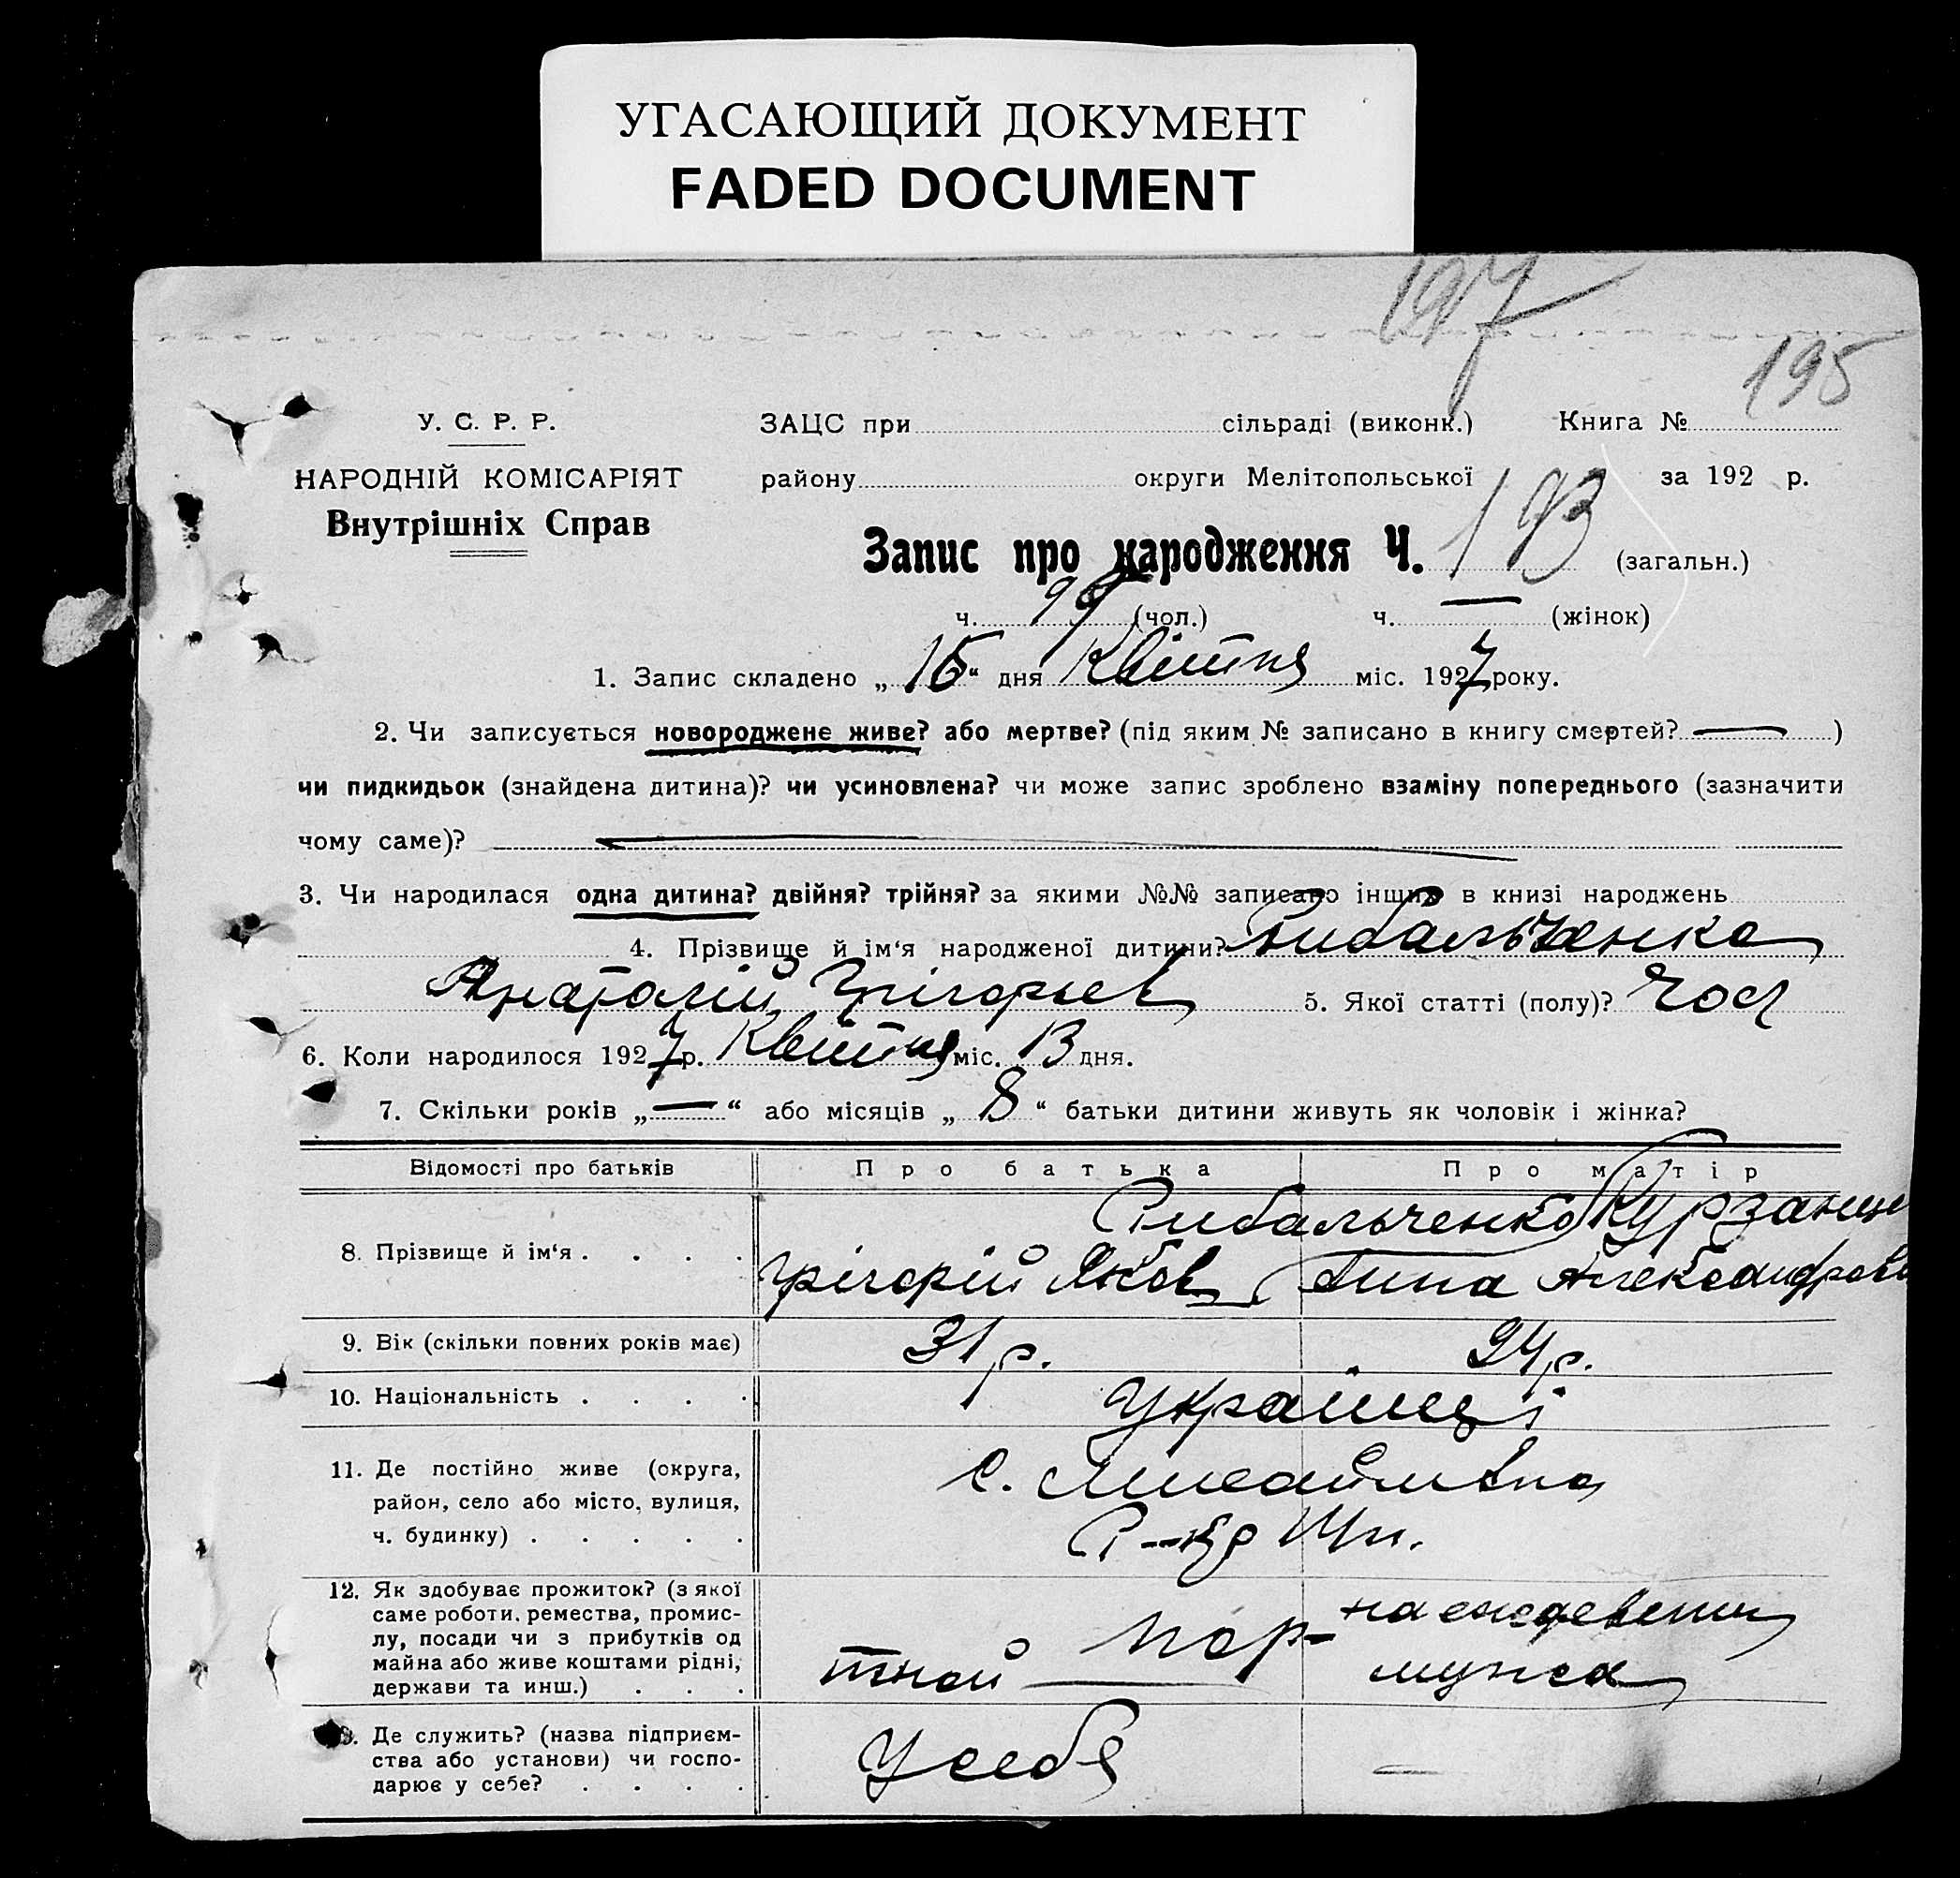 УГАСАЮЩИЙ ДОКУМЕНТ
FADED DOCUMENT
197
195
У. С. Р. Р. ЗАЦС при сільраді (виконк.) Книга №
НАРОДНІЙ КОМІСАРІЯТ району округи Мелітопольської за 192 р.
Внутрішніх Справ
Запис про народження Ч. 193 (загальн.)
ч. 99 (чол.) ч. — (жінок)
1. Запис складено „ 15 “ дня Квітня міс. 1927 року.
2. Чи записується новороджене живе? або мертве? (під яким № записано в книгу смертей? — )
чи пидкидьок (знайдена дитина)? чи усиновлена? чи може запис зроблено взаміну попереднього (зазначити
чому саме)?
3. Чи народилася одна дитина? двійня? трійня? за якими №№ записано інших в книзі народжень
4. Прізвище й ім‘я народженої дитини? Рибальченко
Анатолій Грігорьев 5. Якої статті (полу)? Чол
6. Коли народилося 1927 р. Квітня міс. 13 дня.
7. Скільки років „ — “ або місяців „ 8 “ батьки дитини живуть як чоловік і жінка?
Відомості про батьків Про батька Про матір
8. Прізвище й ім‘я . . . . Рибальченко
Грігорій Яков Александров
9. Вік (скільки повних років має) 31 р. 24 р.
10. Національність . . . . Українці
11. Де постійно живе (округа, с. Михайлівка
район, село або місто, вулиця, Р-ку
ч. будинку) . . . . .
12. Як здобуває прожиток? (з якої
саме роботи, ремества, промис-
лу, посади чи з прибутків од
майна або живе коштами рідні,
держави та инш.) . . .
Пор-
тной
на иждевении
мужа
13. Де служить? (назва підприєм-
ства або установи) чи госпо-
дарює у себе? . . . .
У себя —